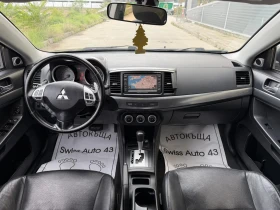 АВТОКЪЩА
Swiss Auto 43
АВТОКЪЩА
Swiss Auto 43